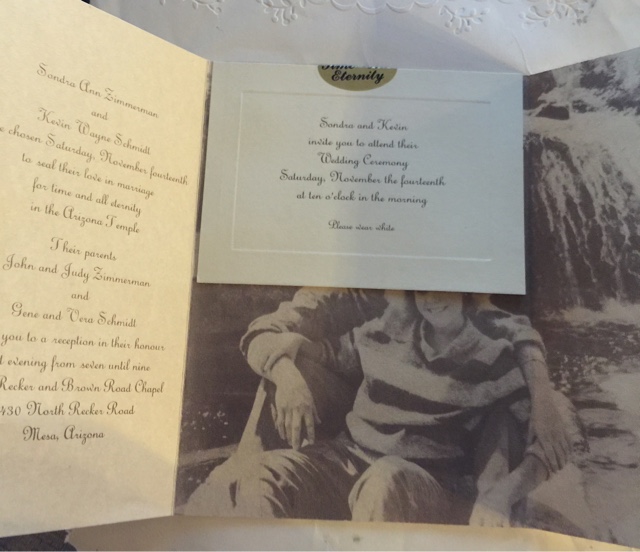 Sandra Ann Zimmerman
and
Kevin Wayne Schmidt
chosen Saturday, November fourteenth
to seal their love in marriage
for time and all eternity
in the Arizona Temple
Their parents
John and Judy Zimmerman
and
Gene and Vera Schmidt
you to a reception in their honour
evening from seven until nine
Recker and Brown Road Chapel
430 North Recker Road
Mesa, Arizona
Eternity
Sandra and Kevin
invite you to attend their
Wedding Ceremony
Saturday, November the fourteenth
at ten o'clock in the morning
Please wear white